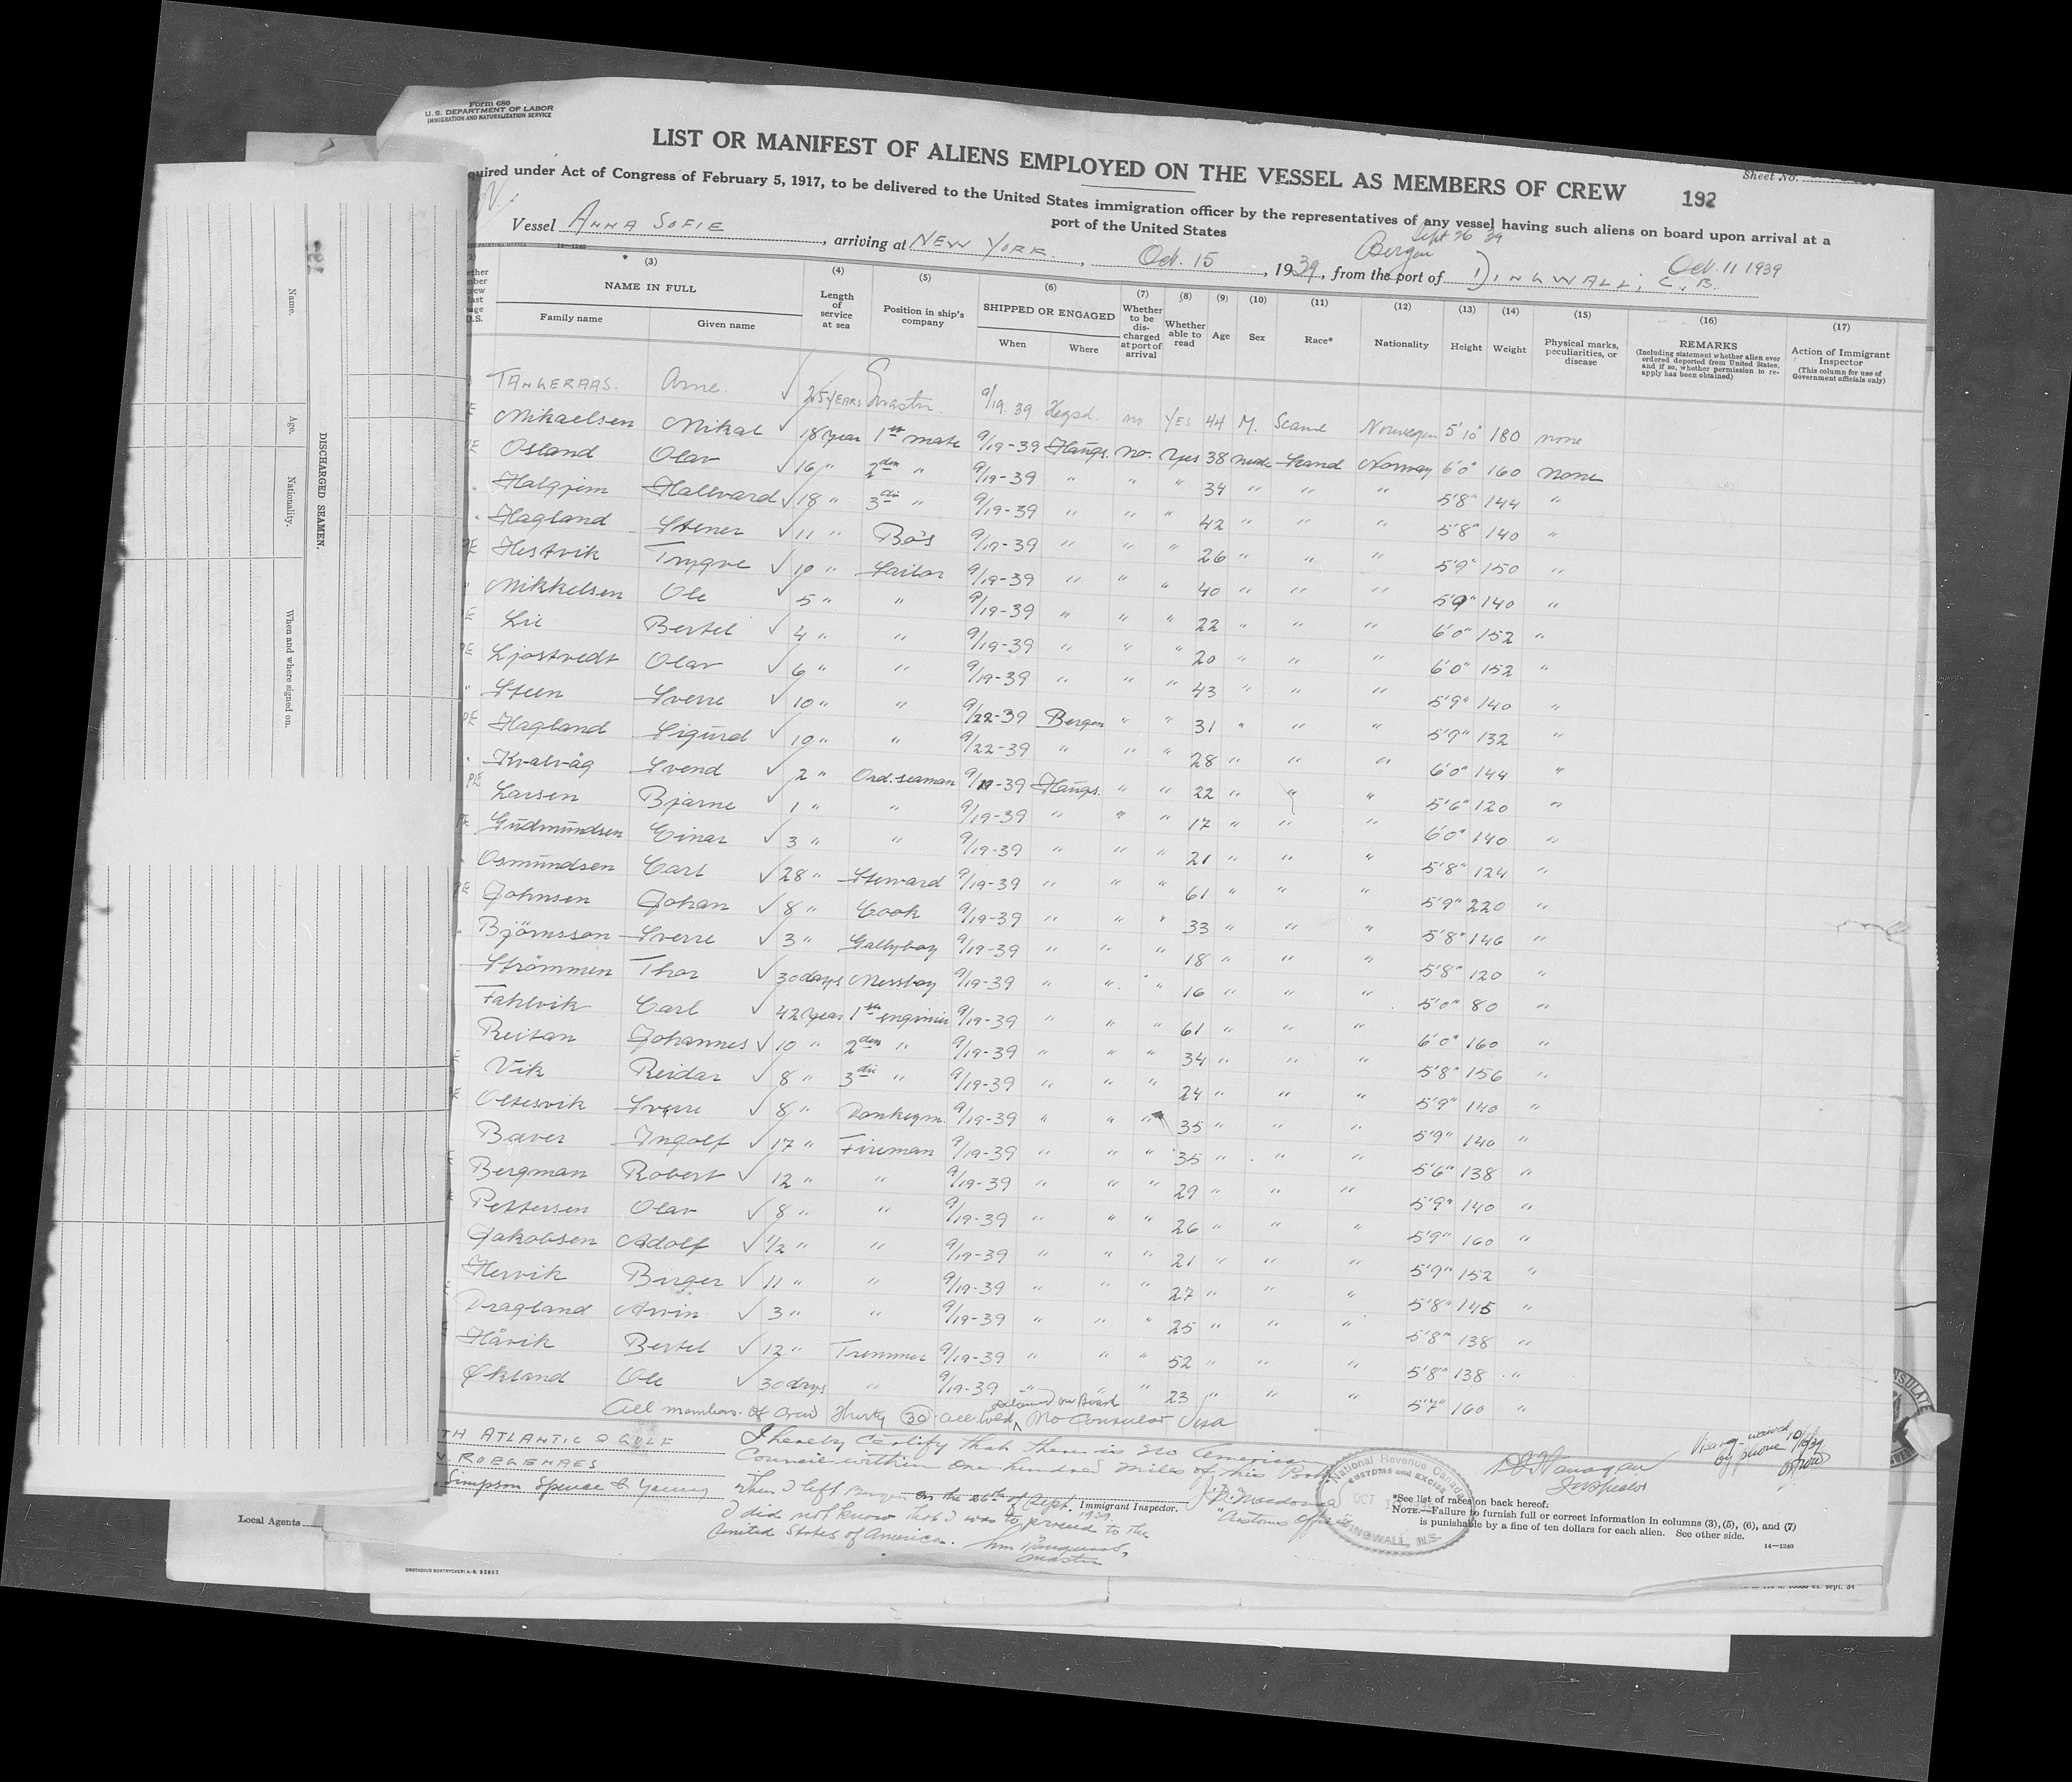 Form 680
U. S. DEPARTMENT OF LABOR
IMMIGRATION AND NATURALIZATION SERVICE
Sheet No.
LIST OR MANIFEST OF ALIENS EMPLOYED ON THE VESSEL AS MEMBERS OF CREW 192
quired under Act of Congress of February 5, 1917, to be delivered to the United States immigration officer by the representatives of any vessel having such aliens on board upon arrival at a
port of the United States
Bergen Sept 26 39
Vessel ANNA SOFIE, arriving at NEW YORK, Oct. 15, 1939, from the port of DINGWALL, C.B. Oct. 11 1939
14—1240
(3) (4) (5) (6) (7) (8) (9) (10) (11) (12) (13) (14) (15) (16) (17)
NAME IN FULL Length of service at sea Position in ship's company SHIPPED OR ENGAGED Whether to be discharged at port of arrival Whether able to read Age Sex Race* Nationality Height Weight Physical marks, peculiarities, or disease REMARKS (Including statement whether alien ever ordered deported from United States, and if so, whether permission to reapply has been obtained) Action of Immigrant Inspector (This column for use of Government officials only)
Family name Given name When Where
TANGERAAS. Arne. √ 25 YEARS Master. 9/19.39 Hegsd. no YES 44 M. Scand Norwegen 5'10" 180 none
Mikaelsen Mikal √ 18 year 1st mate 9/19-39 Haugs. no. Yes 38 male Skand Norway 6'0" 160 none
Osland Olav √ 16 " 2den " 9/19-39 " " " 34 " " " 5'8" 144 "
Halgjem Hallvard √ 18 " 3die " 9/19-39 " " " 42 " " " 5'8" 140 "
Hagland Stener √ 11 " Bo's 9/19-39 " " " 26 " " " 5'9" 150 "
Hestvik Trygve √ 10 " Sailor 9/19-39 " " " 40 " " " 5'9" 140 "
Mikkelsen Ole √ 5 " " 9/19-39 " " " 22 " " " 6'0" 152 "
Lie Bertel √ 4 " " 9/19-39 " " " 20 " " " 6'0" 152 "
Ljostvedt Olav √ 6 " " 9/19-39 " " " 43 " " " 5'9" 140 "
Steen Sverre √ 10 " " 9/22-39 Bergen " " 31 " " " 5'7" 132 "
Hagland Sigurd √ 10 " " 9/22-39 " " " 28 " " " 6'0" 144 "
Kvalvåg Svend √ 2 " Ord. seaman 9/19-39 Haugs. " " 22 " " " 5'6" 120 "
Larsen Bjarne √ 1 " " 9/19-39 " " " 17 " " " 6'0" 140 "
Gudmundsen Einar √ 3 " " 9/19-39 " " " 21 " " " 5'8" 124 "
Osmundsen Carl √ 28 " Steward 9/19-39 " " " 61 " " " 5'9" 220 "
Johnsen Johan √ 8 " Cook 9/19-39 " " " 33 " " " 5'8" 146 "
Björnsson Sverre √ 3 " Gallyboy 9/19-39 " " " 18 " " " 5'8" 120 "
Strömmen Thor √ 30 days Messboy 9/19-39 " " " 16 " " " 5'0" 80 "
Fahlvik Carl √ 42 year 1st enginier 9/19-39 " " " 61 " " " 6'0" 160 "
Reitan Johannes √ 10 " 2den " 9/19-39 " " " 34 " " " 5'8" 156 "
Vik Reidar √ 8 " 3die " 9/19-39 " " " 24 " " " 5'9" 140 "
Oltesvik Sverre √ 8 " Donkeym. 9/19-39 " " " 35 " " " 5'9" 140 "
Bæver Ingolf √ 17 " Fireman 9/19-39 " " " 35 " " " 5'6" 138 "
Bergman Robert √ 12 " " 9/19-39 " " " 29 " " " 5'9" 140 "
Pettersen Olav √ 8 " " 9/19-39 " " " 26 " " " 5'9" 160 "
Jakobsen Adolf √ 1/2 " " 9/19-39 " " " 21 " " " 5'9" 152 "
Hervik Birger √ 11 " " 9/19-39 " " " 27 " " " 5'8" 145 "
Dragland Arvin √ 3 " " 9/19-39 " " " 25 " " " 5'8" 138 "
Håvik Bertel √ 12 " Tremmer 9/19-39 " " " 52 " " " 5'8" 138 "
Økland Ole √ 30 days " 9/19-39 " " " 23 " " " 5'7" 160 "
All members of Crew Thirty (30) all told on Board No Consular Visa
I hereby Certify that there is No American
Council within One hundred miles of this Port
When I left Bergen on the 26th of Sept. 1939
I did not know that I was to proceed to the
United States of America.
Master
TH ATLANTIC & GULF
Simpson Spence & Young
Local Agents
Immigrant Inspector.
Customs Officer
National Revenue Canada
CUSTOMS and EXCISE
OCT
DINGWALL, N.S.
Inspector
Visaing waived
by phone
*See list of races on back hereof.
NOTE.—Failure to furnish full or correct information in columns (3), (5), (6), and (7)
is punishable by a fine of ten dollars for each alien. See other side.
14—1240
DISCHARGED SEAMEN.
Name.
Age.
Nationality.
When and where signed on.